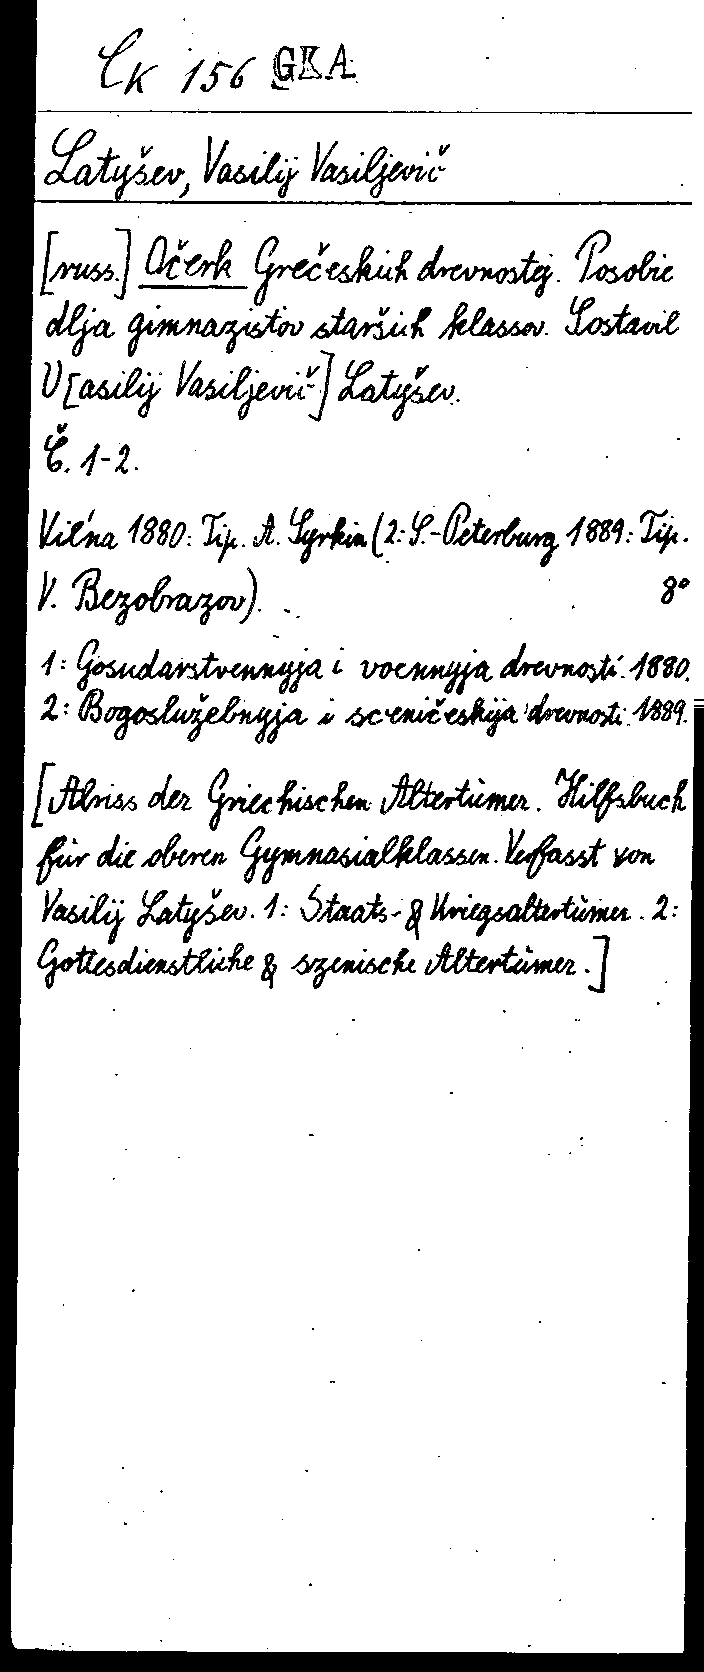 Ck 156 GKA
Latyšev, Vasilij Vasiljevič
[russ.] Očerk Grečeskich drevnostej. Posobie
dlja gimnazistov staršich klassov. Sostavil
V[asilij Vasiljevič] Latyšev.
Č. 1-2.
Vil'na 1880: Tip. A. Syrkin (2: S.-Peterburg 1889: Tip.
V. Bezobrazov). 8°
1: Gosudarstvennyja i voennyja drevnosti. 1880.
2: Bogoslužebnyja i sceničeskija drevnosti. 1889.
[Abriss der Griechischen Altertümer. Hilfsbuch
für die oberen Gymnasialklassen. Verfasst von
Vasilij Latyšev. 1: Staats- & Kriegsaltertümer. 2:
Gottesdienstliche & szenische Altertümer.]